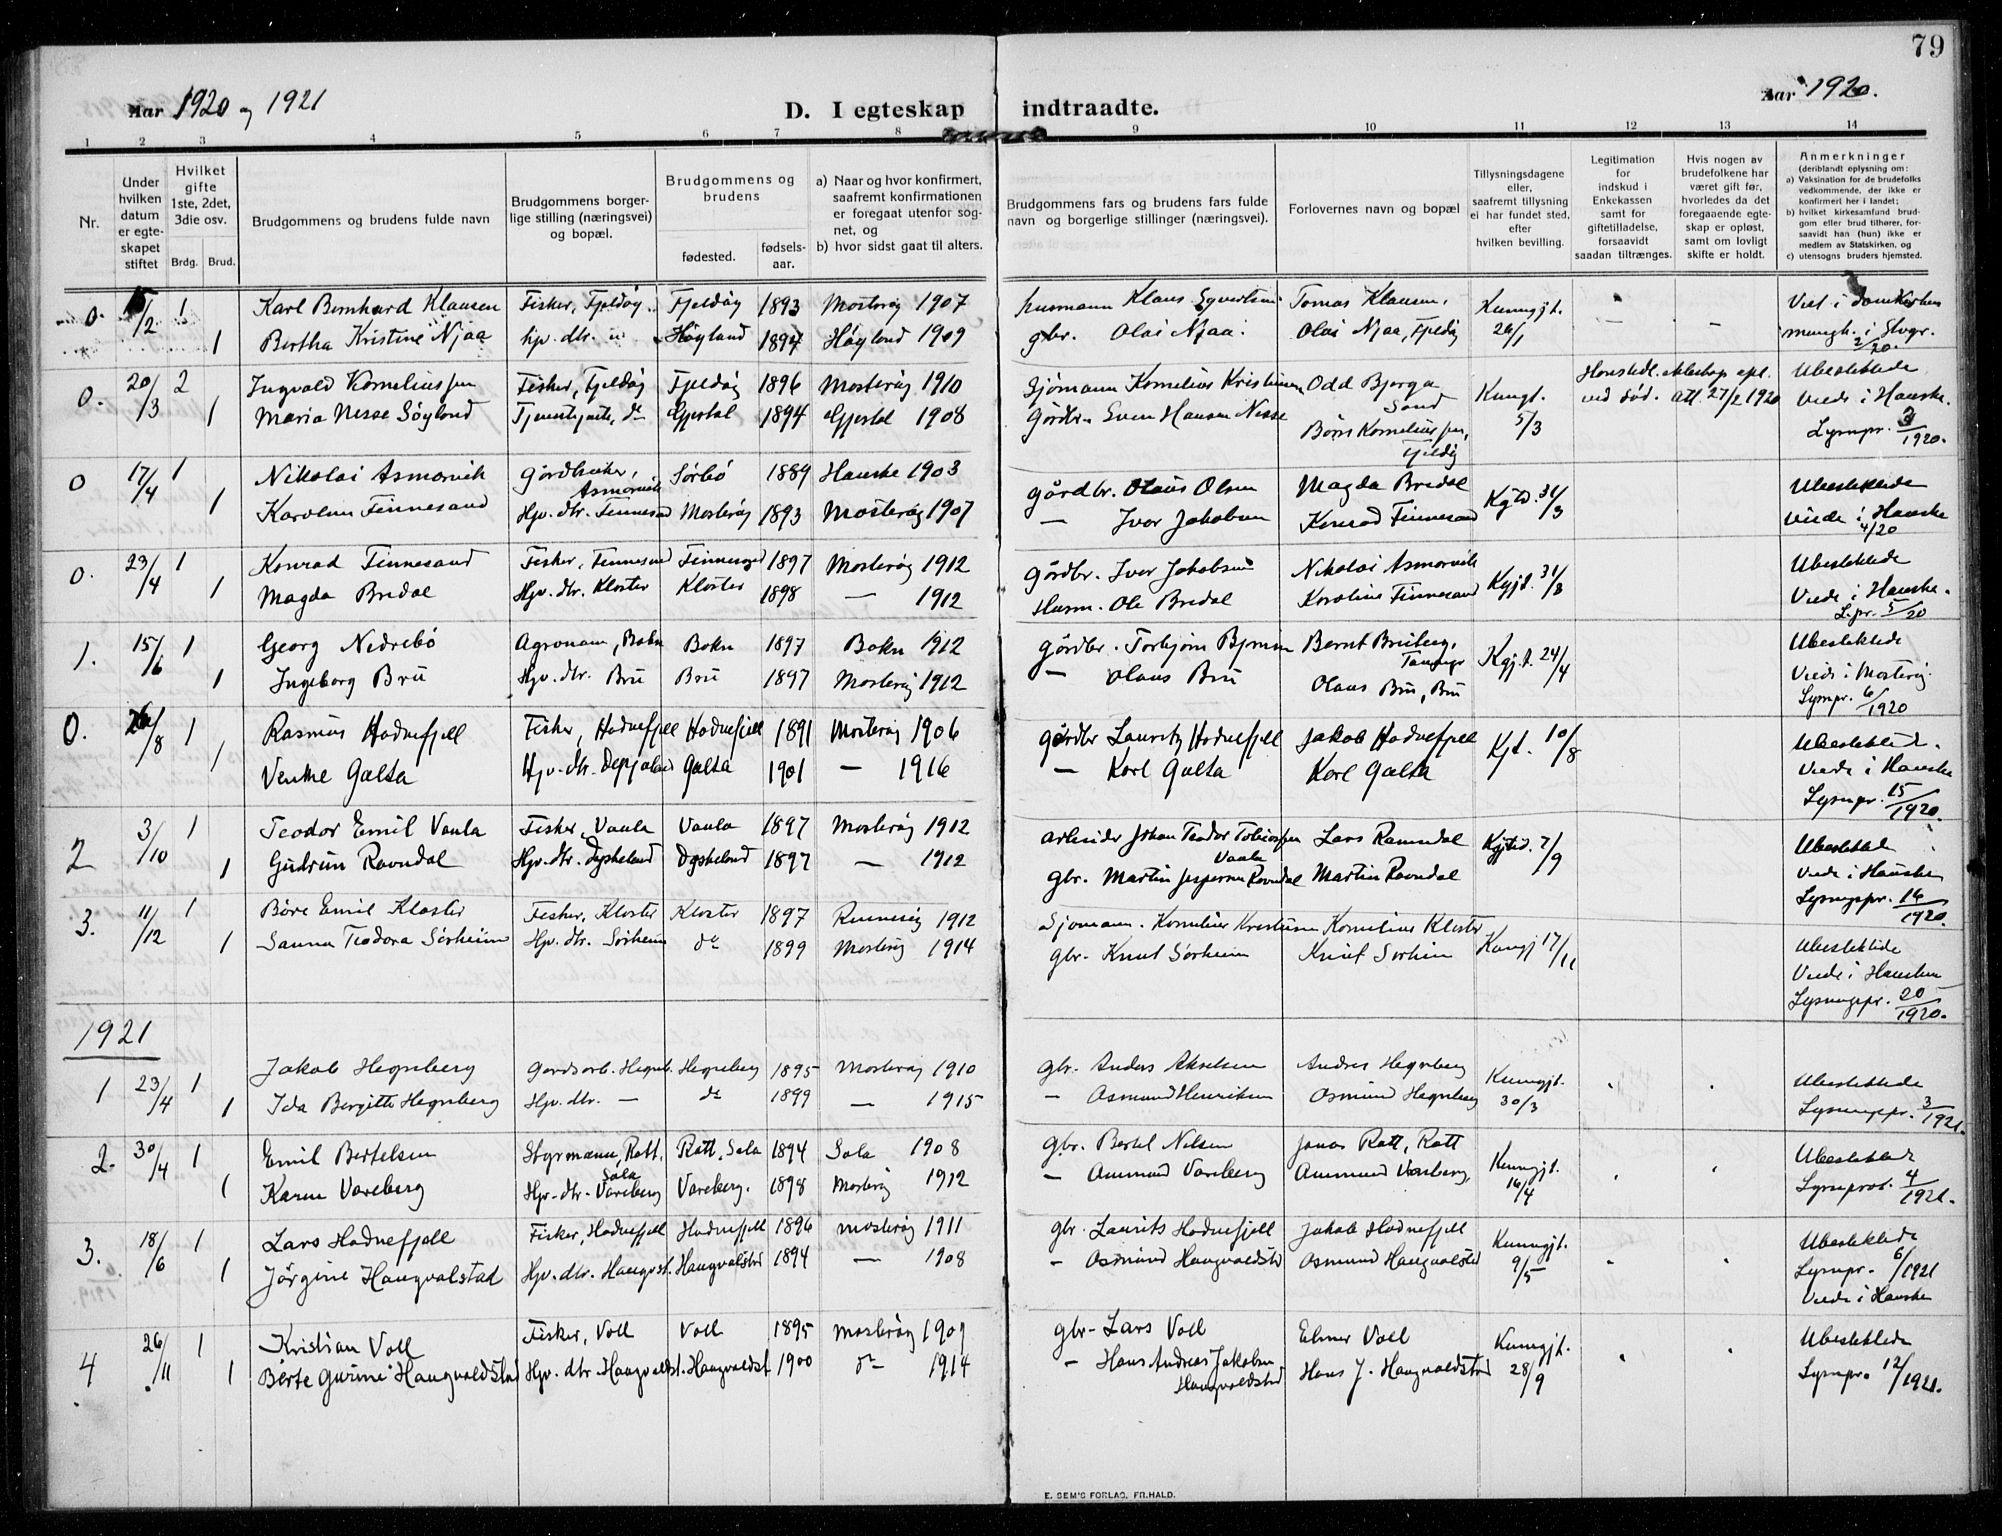 79
Aar 1920 og 1921
D. I egteskap indtraadte.
Aar 1920.
1 2 3 4 5 6 7 8 9 10 11 12 13 14
Nr.
Under hvilken datum er egteskapet stiftet
Hvilket gifte 1ste, 2det, 3die osv.
Brdg. Brud.
Brudgommens og brudens fulde navn
Brudgommens borgerlige stilling (næringsvei) og bopæl.
Brudgommens og brudens
fødested.
fødselsaar.
a) Naar og hvor konfirmert, saafremt konfirmationen er foregaat utenfor sognet, og
b) hvor sidst gaat til alters.
Brudgommens fars og brudens fars fulde navn og borgerlige stillinger (næringsvei).
Forlovernes navn og bopæl
Tillysningsdagene eller, saafremt tillysning ei har fundet sted, efter hvilken bevilling.
Legitimation for indskud i Enkekassen samt for giftetilladelse, forsaavidt saadan tiltrænges.
Hvis nogen av brudefolkene har været gift før, hvorledes da det foregaaende egteskap er opløst, samt om lovligt skifte er holdt.
Anmerkninger
(deriblandt oplysning om:
a) Vaksination for de brudefolks vedkommende, der ikke er konfirmert her i landet;
b) hvilket kirkesamfund brudgom eller brud tilhører, forsaavidt han (hun) ikke er medlem av Statskirken, og
c) utensogns bruders hjemsted.
0. 15/2 1 Karl Bernhard Klausen Fisker, Fjeldøy Fjeldøy 1893 Mosterøy 1907 husmann Klaus Syvertsen Tomas Klausen, Kunngjt. Viet i Domkirken
1 Bertha Kristine Njaa hv. dtr. Høyland 1894 Høyland 1909 gbr. Olai Njaa. Olai Njaa, Fjeldøy 26/1 — — 2/20.
0. 20/3 2 Ingvald Korneliussen Fisker, Fjeldøy Fjeldøy 1896 Mosterøy 1910 Sjømann Kornelius Kristensen Odd Bjerga Kungt. Ubeslektede
1 Maria Nesse Søyland do Gjestal 1894 Gjestal 1908 Gårdbr. Sven Hansen Nesse Sand 5/3 ved død. att. 27/2 1920 Viede i Hauske.
Børe Korneliussen, Fjeldøy Lysnpr. 3/1920.
0 17/4 1 Nikolai Asmarvik Gårdbruker, Asmarvik Sørbø 1889 Hauske 1903 gårdbr. Olaus Olsen Magda Bredal Kgjtd. 31/3 Ubeslektede
1 Karoline Finnesand Hjv. dtr. Finnesand Mosterøy 1893 Mosterøy 1907 — Ivar Jakobsen Konrad Finnesand Viede i Hauske 4/20
0. 23/4 1 Konrad Finnesand Fisker, Finnesand Finnesand 1897 Mosterøy 1912 Gårdbr. Ivar Jakobsen Nikolai Asmarvik Kgjt. 31/3 Ubeslektede
1 Magda Bredal Hjv. dtr. Kloster Kloster 1898 — 1912 Husm. Ole Bredal Karoline Finnesand Viede i Hauske.
L.pr. 5/20
1. 15/6 1 Georg Nedrebø Agronom, Bokn Bokn 1897 Bokn 1912 gårdbr. Torbjørn Bernt Bruberg, Kgjt. 24/4 Ubeslektede
1 Ingeborg Bru Hjv. dtr. Bru Bru 1897 Mosterøy 1912 — Olaus Bru Olaus Bru, Bru Viede i Mosterøy.
Lysnpr. 6/1920
0. 26/8 1 Rasmus Hodnefjell Fisker, Hodnefjell Hodnefjell 1891 Mosterøy 1906 gårdbr Lauritz Hodnefjell Jakob Hodnefjell Kjt. 10/8 Ubeslektede.
1 Venke Galta Hjv. dtr. Galta 1901 — 1916 — Karl Galta Karl Galta Viede i Hauske
Lysnpr. 15/1920.
2 3/10 1 Teodor Emil Vaula Fisker, Vaula Vaula 1897 Mosterøy 1912 arbeider Johan Teodor Tobiassen Vaula Lars Ravndal Kgjtd. 7/9 Ubeslektede
1 Gudrun Ravndal Hjv. dtr. Dysheland Dysheland 1897 — 1912 gbr. Martin Jespersen Ravndal Martin Ravndal Viede i Hauske
Lysnpr. 16/1920.
3. 11/12 1 Børe Emil Kloster Fisker, Kloster Kloster 1897 Rennesøy 1912 Sjømann. Kornelius Kristensen Kornelius Kloster Kungj 17/11 Ubeslektede
1 Sanna Teodora Sørheim Hjv. dtr. Sørheim do 1899 Mosterøy 1914 gbr. Knut Sørheim Knut Sørheim Viede i Hausken
Lysningspr. 20/1920.
1921
1 23/4 1 Jakob Hegreberg Gardsarb. Hegreb. Hegreberg 1895 Mosterøy 1910 gbr. Anders Akselsen Andres Hegreberg Kunngjt. Ubeslektede
1 Ida Bergitte Hegreberg Hjv. dtr. — do 1899 — 1915 — Osmund Henriksen Osmund Hegreberg 30/3 Lysningspr. 3/1921.
2. 30/4 1 Emil Bertelsen Styrmann, Rott, Sola Rott, Sola 1894 Sola 1908 gbr. Bertel Nilsen Jonas Rott, Rott Kunngjt. Ubeslektede
1 Karen Vareberg Hjv. dtr. Vareberg Vareberg. 1898 Mosterøy 1912 — Ammund Vareberg Ammund Vareberg, 16/4 Lysnprot. 4/1921.
3. 18/6 1 Lars Hodnefjell Fisker, Hodnefjell Hodnefjell 1896 Mosterøy 1911 gbr. Laurits Hodnefjell Jakob Hodnefjell Kunngjt. Ubeslektede
1 Jørgine Haugvalstad Hjv. dtr. Haugvst. Haugvalstad 1894 — 1908 — Osmund Haugvaldstd Osmund Haugvalstd 9/5 Lysnpr. 6/1921
Viede i Hauske
4 26/11 1 Kristian Voll Fisker, Voll Voll 1895 Mosterøy 1909 gbr. Lars Voll Elmer Voll Kunngjt. Ubeslektede
1 Berte Gurine Haugvaldstad Hjv. dtr. Haugvaldst. Haugvaldst 1900 do 1914 — Hans Andreas Jakobsen Haugvaldstd Hans J. Haugvaldstad 28/9 Lysnpr. 12/1921.
E. SEM'S FORLAG, FR.HALD.